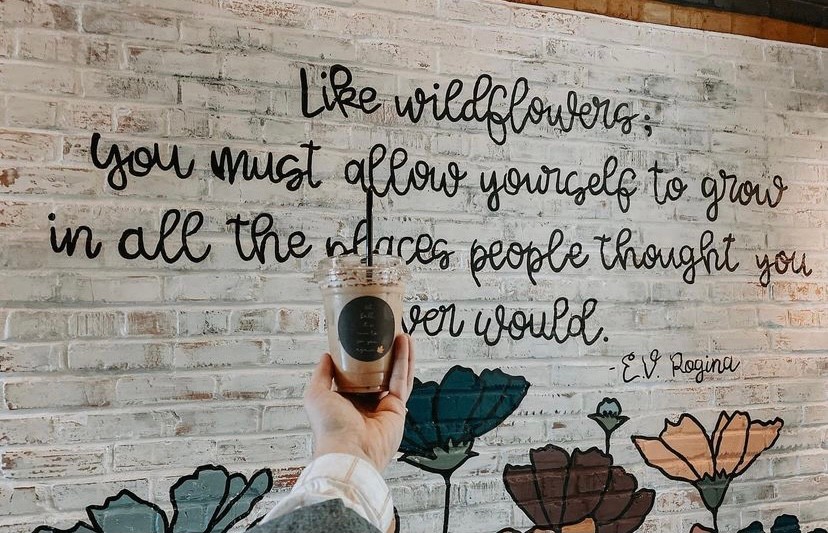 Like wildflowers;
you must allow yourself to grow
in all the places people thought you
never would.
- E.V. Rogina